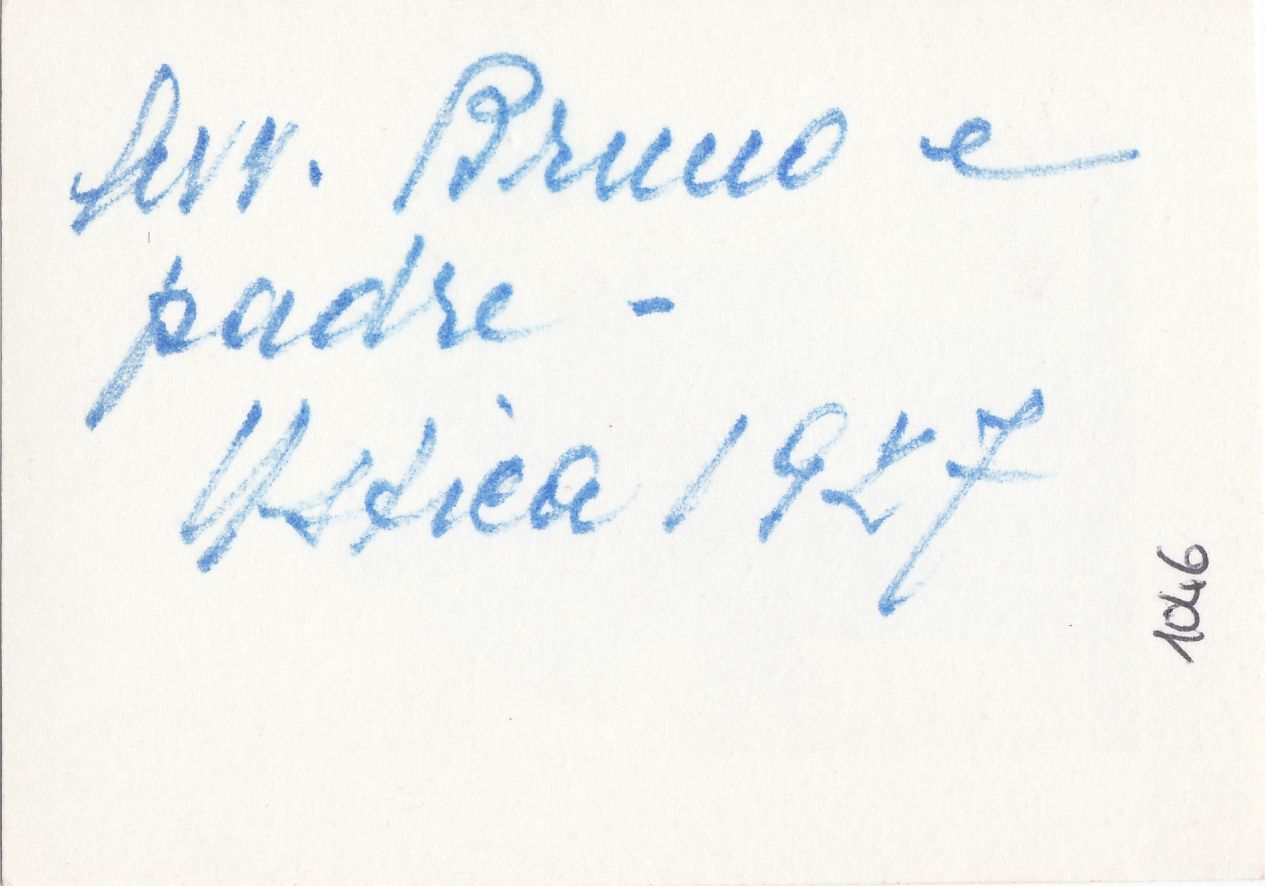 Avv. Bruno e
padre -
Ustica 1927
1046